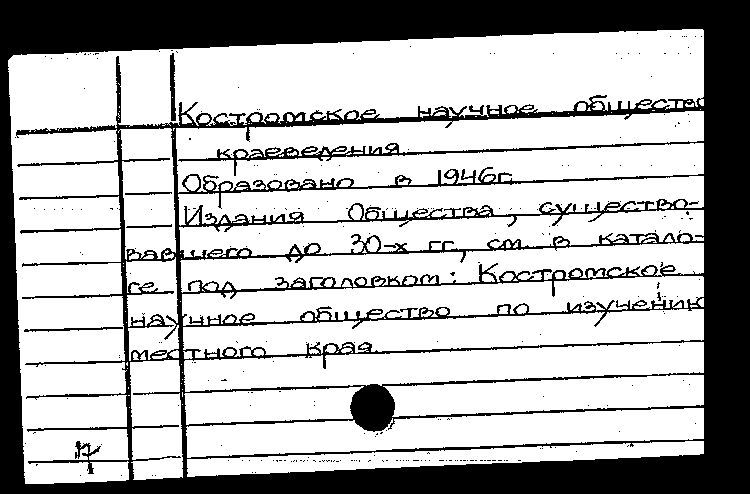 Костромское научное общество
краеведения.
Образовано в 1946г.
Издания Общества, существо-
вавшего до 30-х гг, см. в катало-
ге под заголовком: Костромское
научное общество по изучению
местного края.